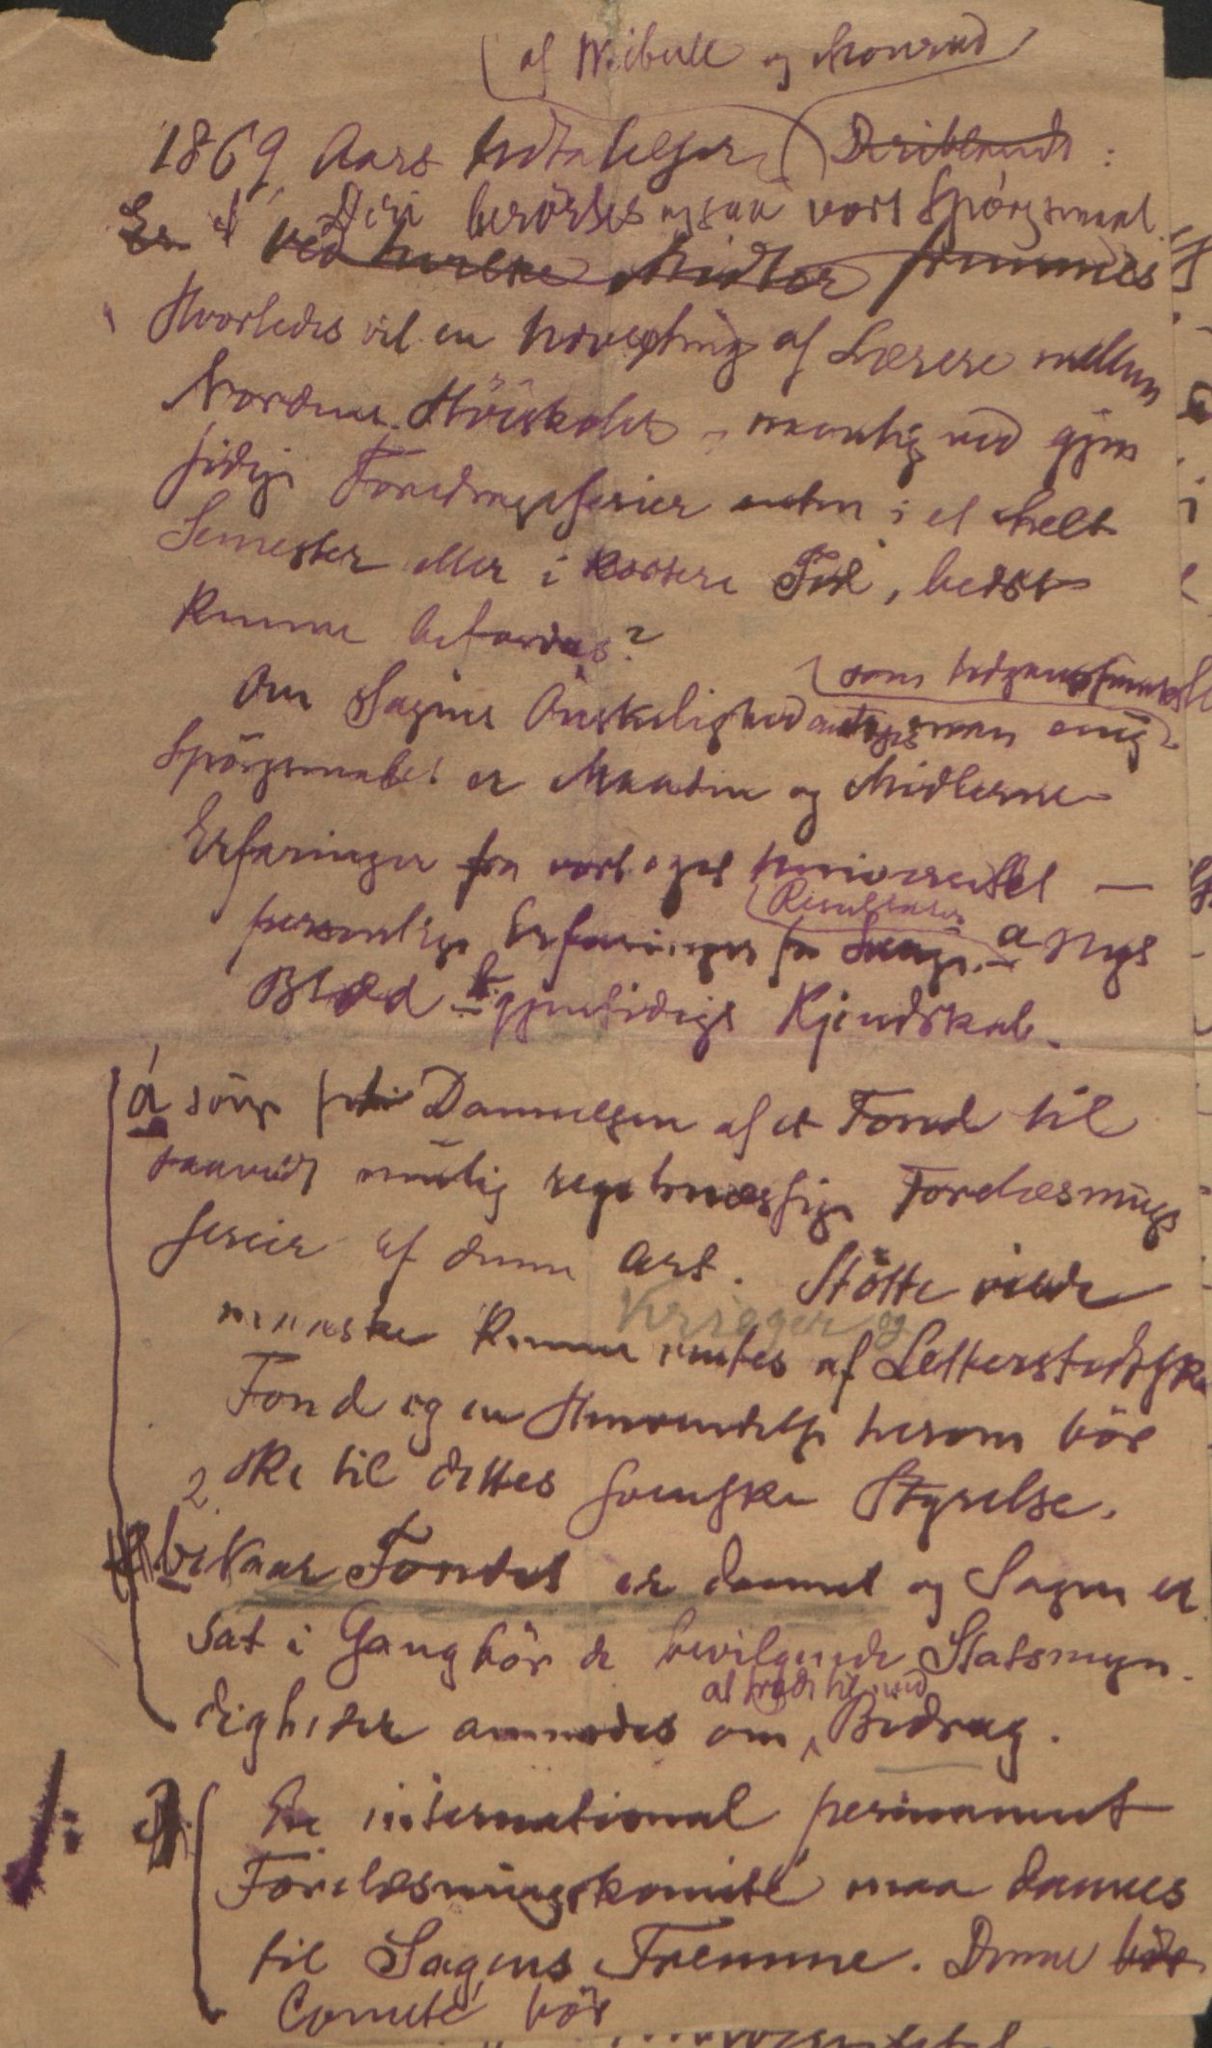 af Weibull og Monrad
1869 Aars Udtalelser Deriblandt:
Deri berörtes ogsaa vort Spörgsmaal.
Er et ved hvilke Midler fremmes
Hvorledes vil en Udvexling af Lærere mellem
Nordens Höiskoler, navnlig ved gjen
sidige Foredragsserier enten i et helt
Semester eller i kortere Tid, bedst
kunne befordres?
som Udgangspunkt
Om Sagens Önskelighed antages man enig
Spörgsmaalet er Maaden og Midlerne
Erfaringer fra vort eget Universitet —
Resultater
personlige Erfaringer fra a nyt
Blod b. gjensidigt Kjendskab.
a sörge for Dannelsen af et Fond til
saavidt mulig regelmæssige Forelæsnings
serier af denne Art. Stötte vilde
Krieger og
maaske kunne ventes af Letterstedtske
Fond og en Henvendelse herom bör
2 ske til dettes svenske Styrelse.
b. Naar Fondet er dannet og Sagen er
sat i Gang bör de bevilgende Statsmyn-
at træde til med
digheder anmodes om Bidrag.
En international permanent
Forelæsningskomité maa dannes
til Sagens Fremme. Denne bör
Comité bör